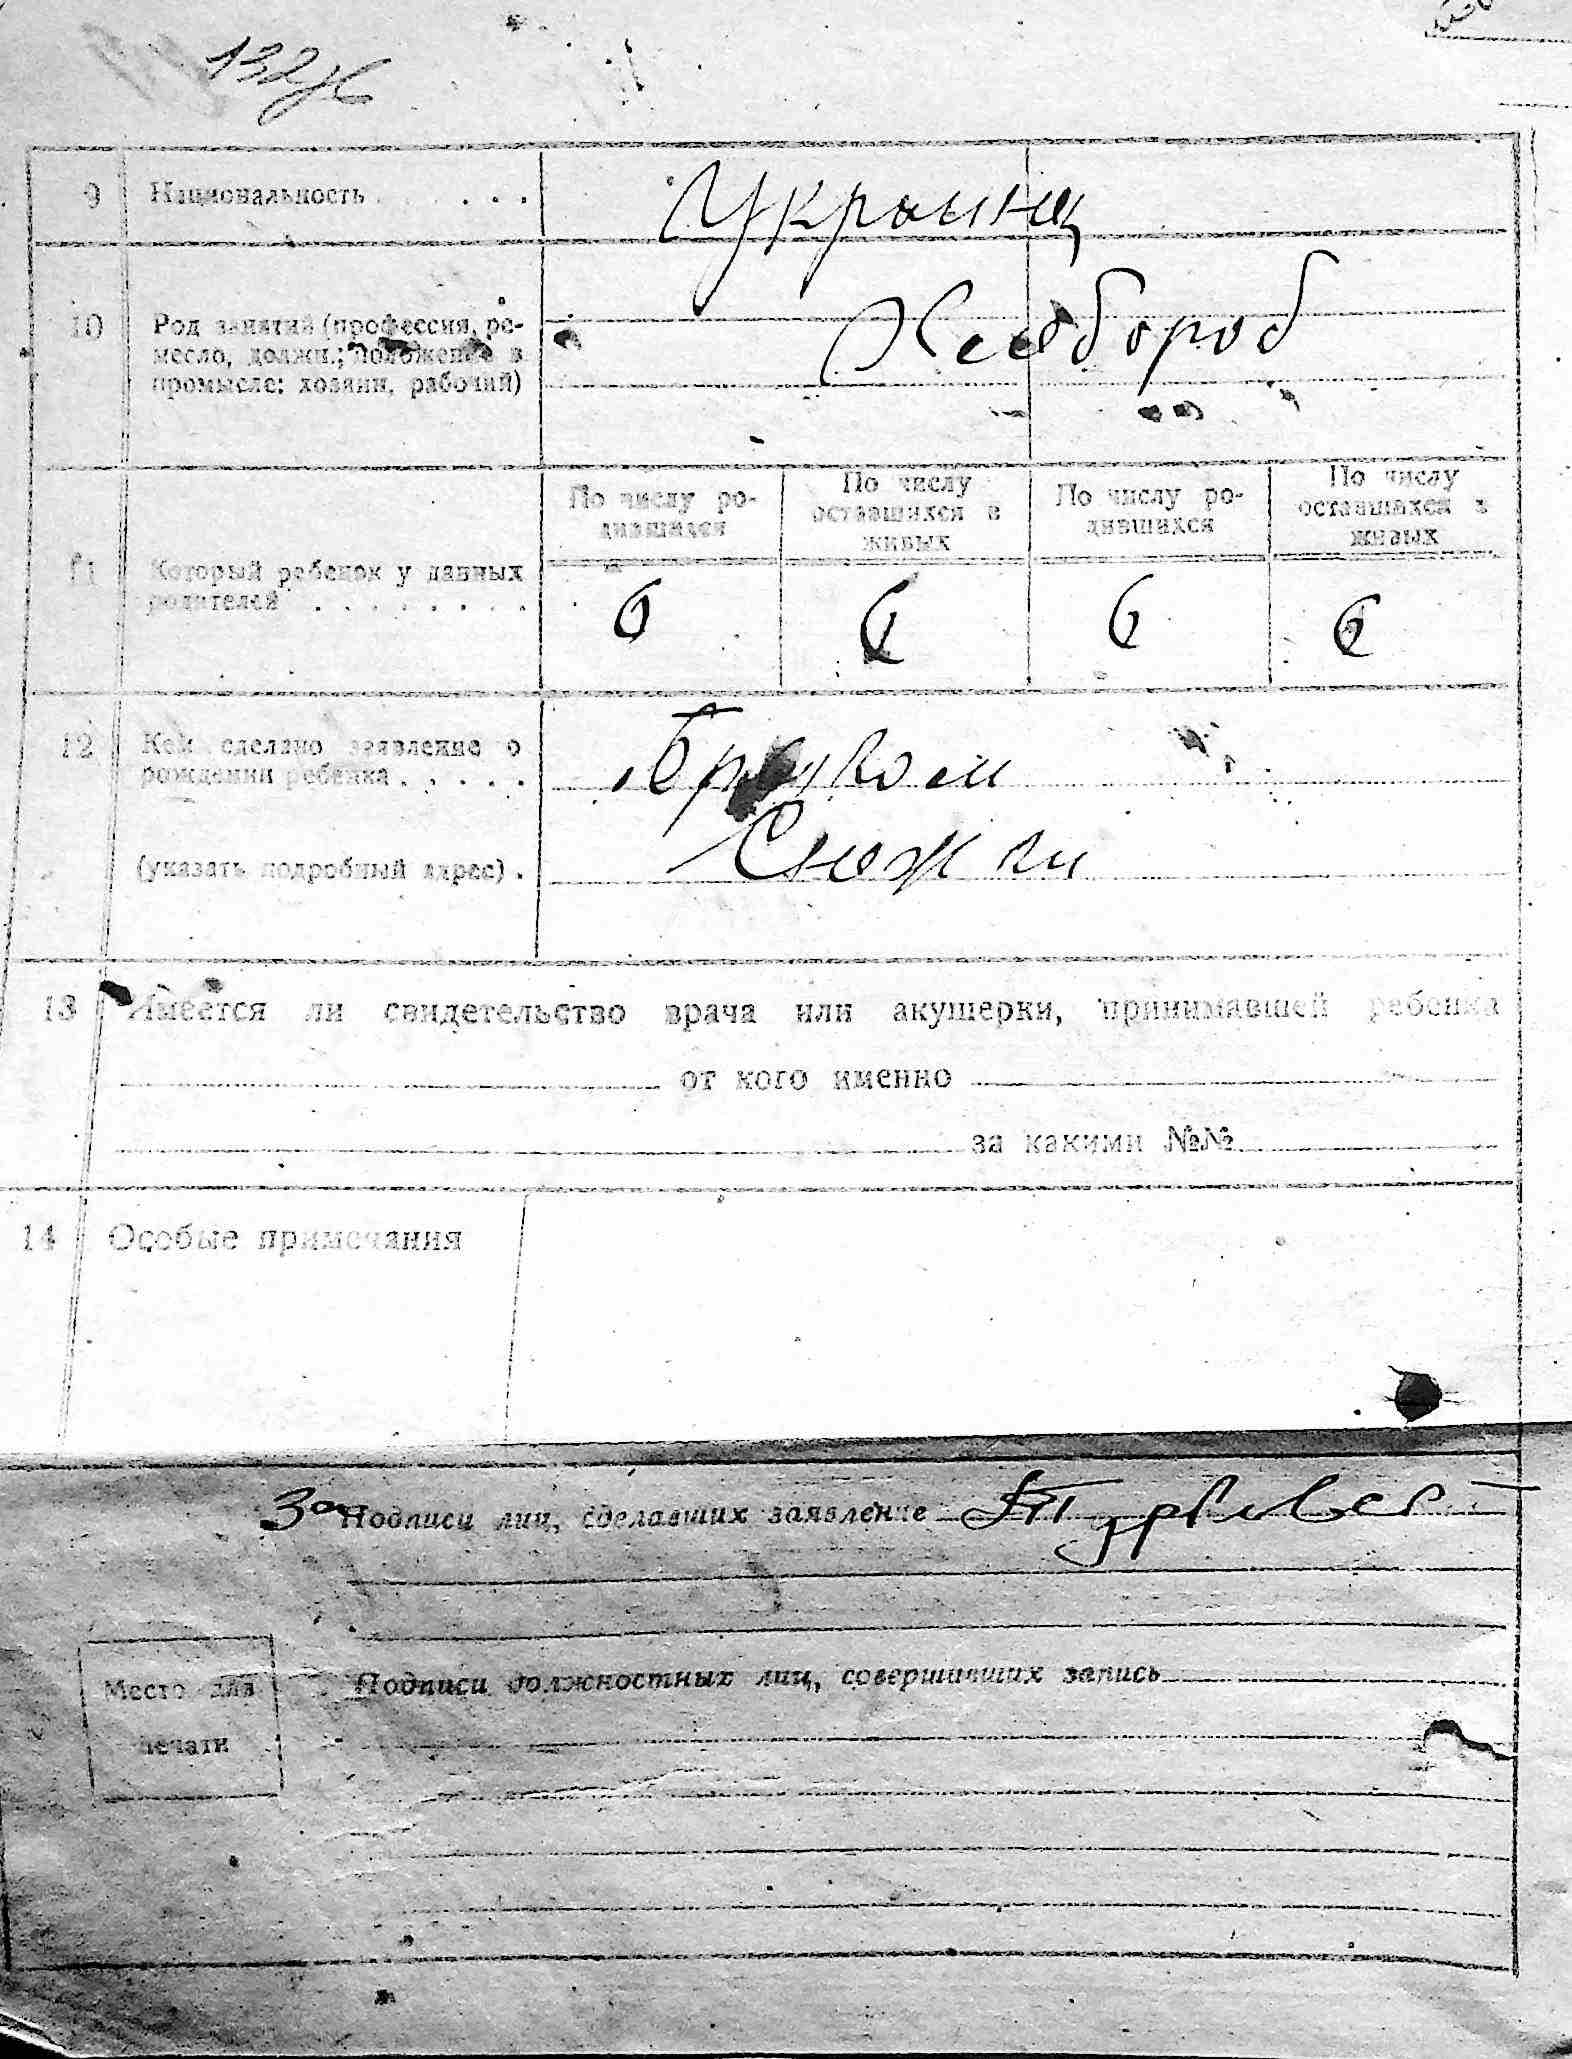 132
9 Национальность . . . . . . Украинц
10 Род занятий (профессия, ре-
месло, должн.; положение в
промысле: хозяин, рабочий)
Хлебороб
По числу ро-
дившихся
По числу
оставшихся в
живых
По числу ро-
дившихся
По числу
оставшихся в
живых
11 Который ребенок у данных
родителей . . . . . . . .
6 6 6 6
12 Кем сделано заявление о
рождении ребенка . . . . .
(указать подробный адрес) .
Снежки
13 Имеется ли свидетельство врача или акушерки, принимавшей ребенка
от кого именно
за какими №№
14 Особые примечания
За Подписи лиц, сделавших заявление
Подписи должностных лиц, совершивших запись
Место для
печати